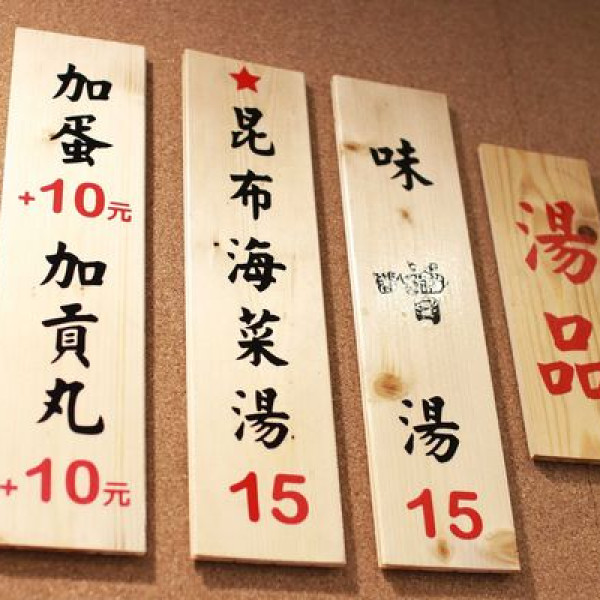 湯品
味噌湯
15
★昆布海菜湯
15
加蛋
+10元
加貢丸
+10元